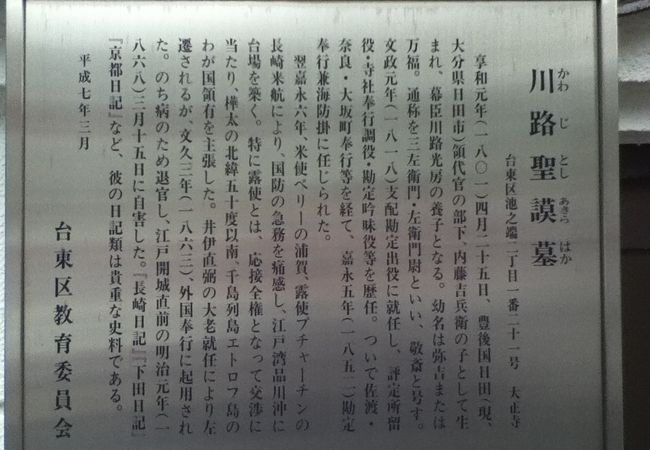 川路聖謨墓
かわ じ とし あきら はか
台東区池之端二丁目一番二十一号 大正寺
享和元年(一八〇一)四月二十五日、豊後国日田(現、
大分県日田市)領代官の部下、内藤吉兵衛の子として生
まれ、幕臣川路光房の養子となる。幼名は弥吉または
万福。通称を三左衛門・左衛門尉といい、敬斎と号す。
文政元年(一八一八)支配勘定出役に就任し、評定所留
役・寺社奉行調役・勘定吟味役等を歴任。ついで佐渡・
奈良・大坂町奉行等を経て、嘉永五年(一八五二)勘定
奉行兼海防掛に任じられた。
翌嘉永六年、米使ペリーの浦賀、露使プチャーチンの
長崎来航により、国防の急務を痛感し、江戸湾品川沖に
台場を築く。特に露使とは、応接全権となって交渉に
当たり、樺太の北緯五十度以南、千島列島エトロフ島の
わが国領有を主張した。井伊直弼の大老就任により左
遷されるが、文久三年(一八六三)、外国奉行に起用され
た。のち病のため退官し、江戸開城直前の明治元年(一
八六八)三月十五日に自害した。『長崎日記』『下田日記』
『京都日記』など、彼の日記類は貴重な史料である。
平成七年三月
台東区教育委員会